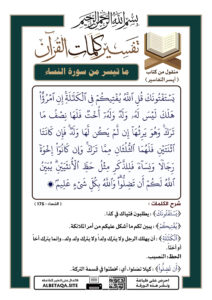 بسم الله الرحمن الرحيم
تفسير كلمات القرآن
منقول من كتاب
( أيسر التفاسير )
ما تيسر من سورة النساء
يَسْتَفْتُونَكَ قُلِ اللَّهُ يُفْتِيكُمْ فِي الْكَلَالَةِ إِنِ امْرُؤٌا
هَلَكَ لَيْسَ لَهُ وَلَدٌ وَلَهُ أُخْتٌ فَلَهَا نِصْفُ مَا
تَرَكَ وَهُوَ يَرِثُهَا إِن لَّمْ يَكُن لَّهَا وَلَدٌ فَإِن كَانَتَا
اثْنَتَيْنِ فَلَهُمَا الثُّلُثَانِ مِمَّا تَرَكَ وَإِن كَانُوا إِخْوَةً
رِّجَالًا وَنِسَاءً فَلِلذَّكَرِ مِثْلُ حَظِّ الْأُنثَيَيْنِ يُبَيِّنُ
اللَّهُ لَكُمْ أَن تَضِلُّوا وَاللَّهُ بِكُلِّ شَيْءٍ عَلِيمٌ
شرح الكلمات : ( النساء : 176 )
﴿يَسْتَفْتُونَكَ﴾ : يطلبون فتياك في كذا.
﴿يُفْتِيكُمْ﴾ : يبين لكم ما أشكل عليكم من أمر الكلالة.
﴿الْكَلَالَةِ﴾ : أن يهلك الرجل ولا يترك ولدا ولا ولد ولد، وإنما يترك أخا
أو أختا.
الحظ: النصيب.
﴿أَن تَضِلُّوا﴾ : كيلا تضلوا، أي: تخطئوا في قسمة التركة.
ALBETAQA.SITE